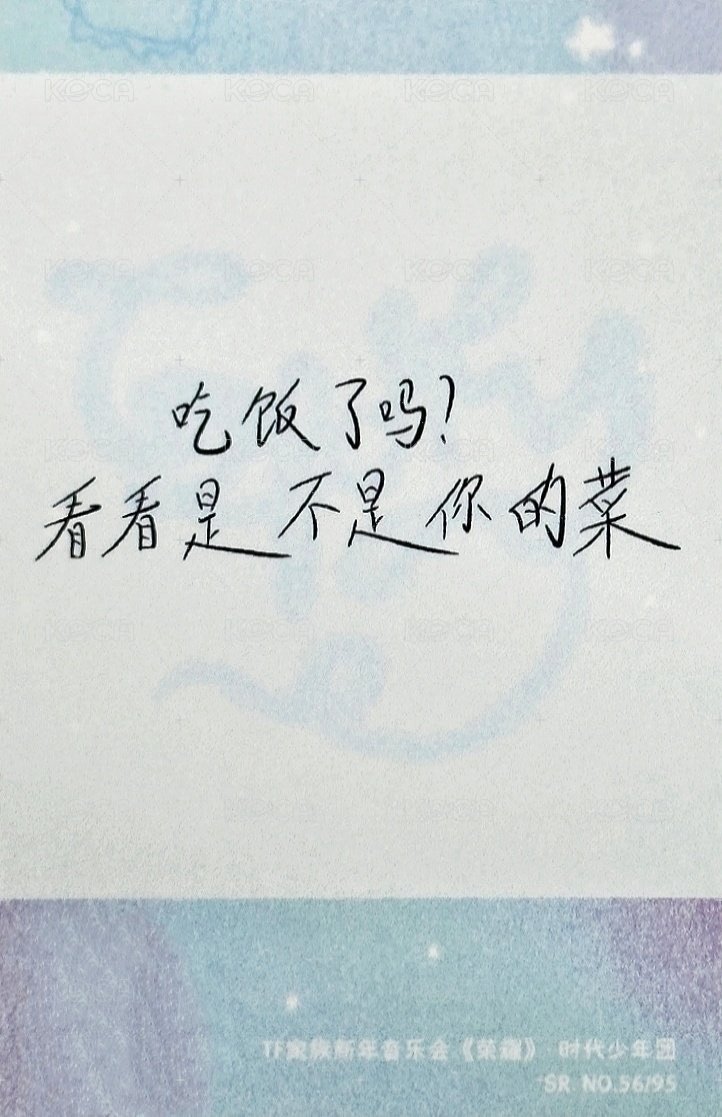 吃饭了吗?
看看是不是你的菜
TF家族新年音乐会《荣耀》 时代少年团
SR NO.56/95